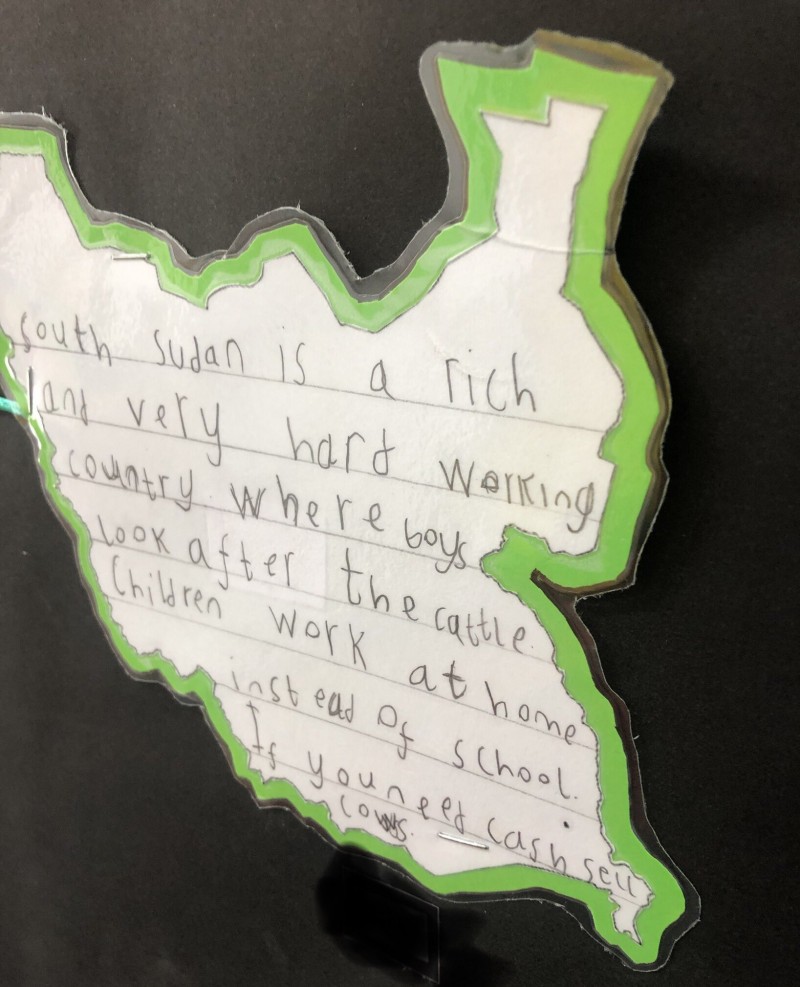 south sudan is a rich
and very hard working
country where boys
look after the cattle.
Children work at home
instead of school.
If you need cash sell
cows.